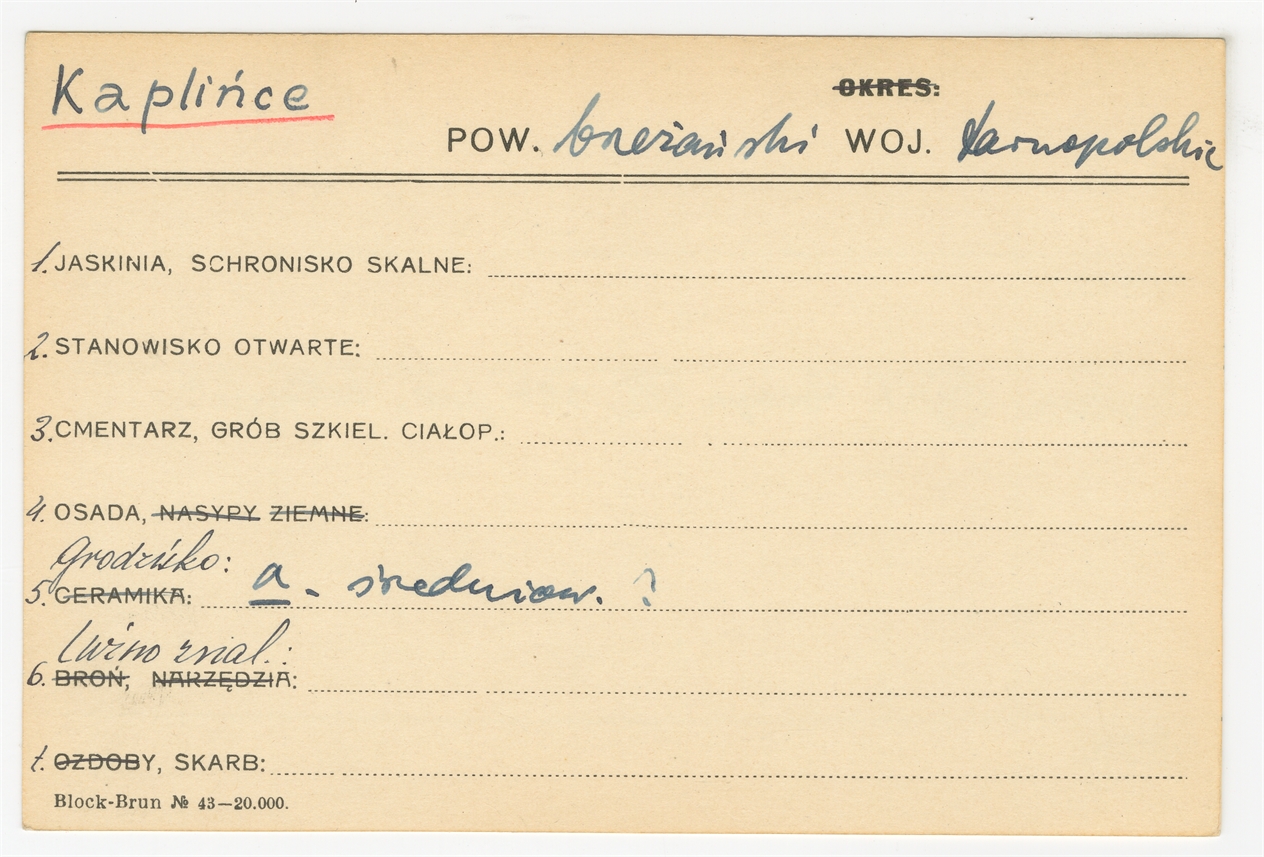 Kaplińce
OKRES:
POW. brzeżański WOJ. tarnopolskie
1. JASKINIA, SCHRONISKO SKALNE:
2. STANOWISKO OTWARTE:
3. CMENTARZ, GRÓB SZKIEL. CIAŁOP.:
4. OSADA, NASYPY ZIEMNE:
Grodzisko:
5. CERAMIKA: a. średniow. ?
Luźno znal.:
6. BROŃ, NARZĘDZIA:
7. OZDOBY, SKARB:
Block-Brun № 43—20.000.